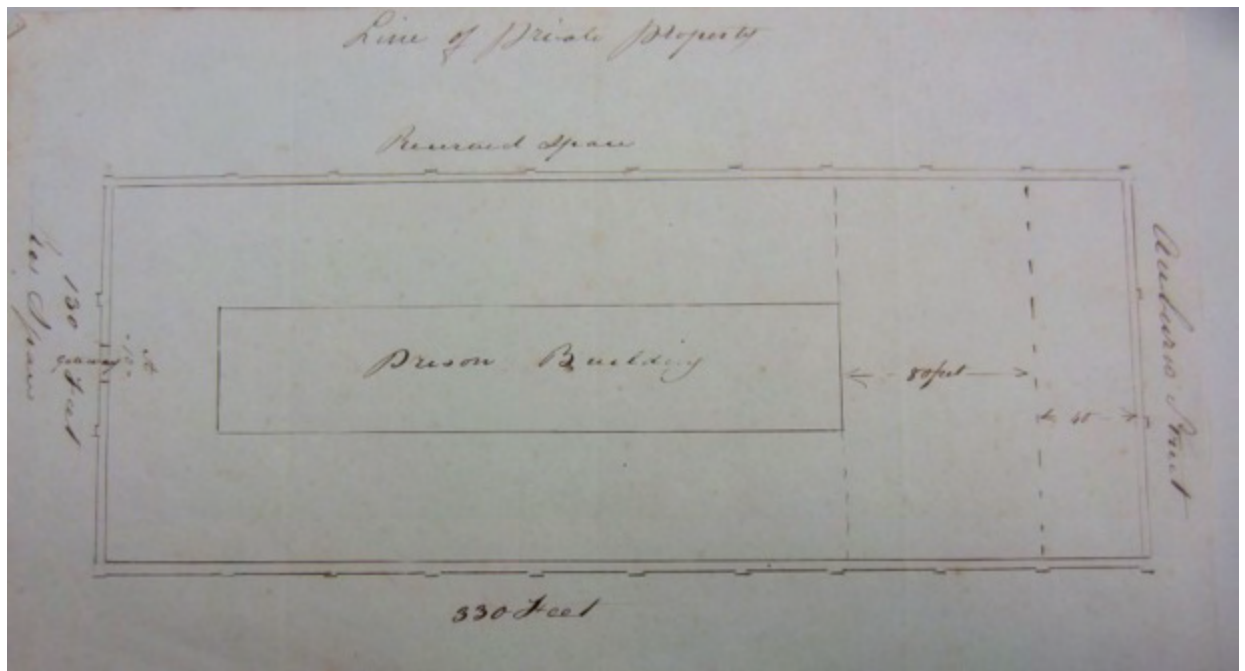 Line of Private Property
Reserved Space
Res Space
130 Feet
Gateway
Prison Building
80 feet
40
Auburn Street
330 Feet